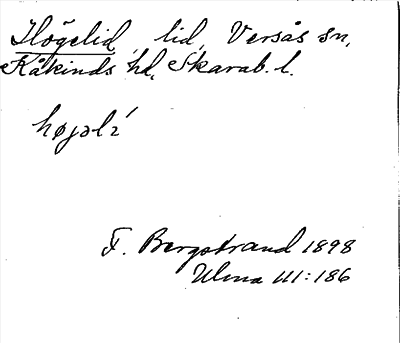 Högelid, lid, Versås sn,
Kåkinds hd, Skarab. l.
højəlí
F. Bergstrand 1898
Ulma III:186